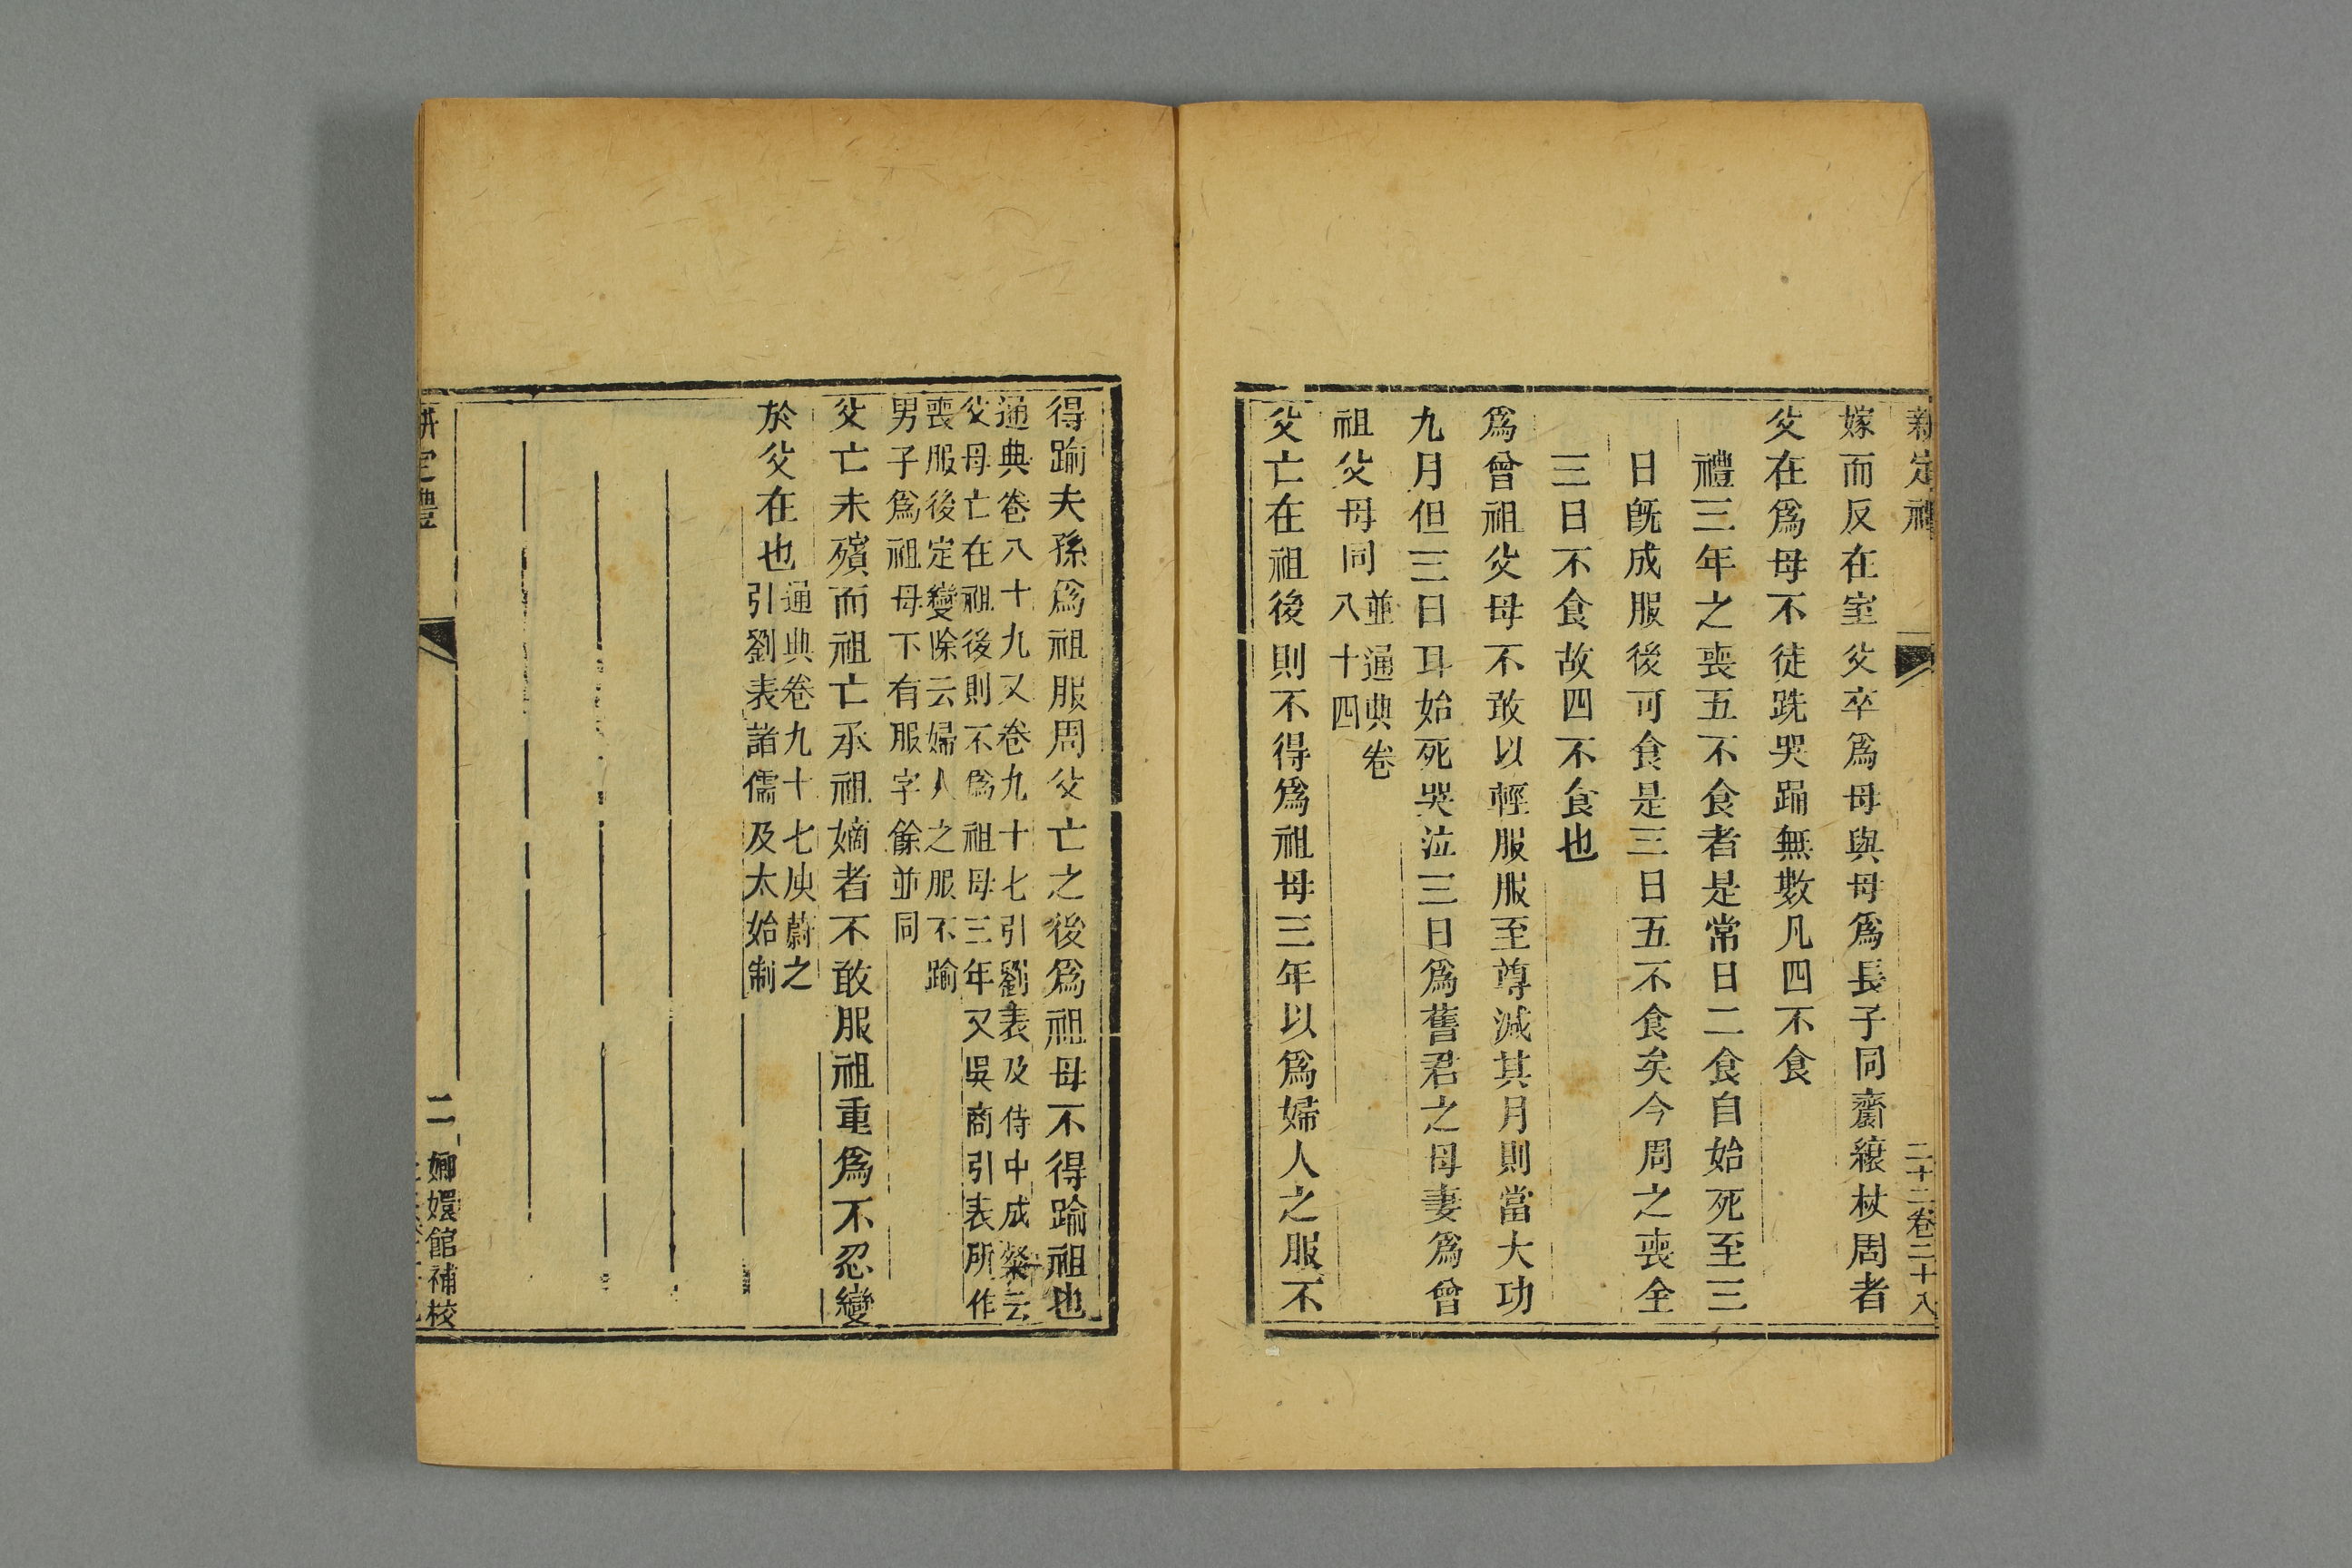 新定禮
二十二卷三十八
嫁而反在室父卒爲母與母爲長子同齋縗杖周者
父在爲母不徒跣哭踊無數凡四不食
禮三年之喪五不食者是常日二食自始死至三
日旣成服後可食是三日五不食矣今周之喪全
三日不食故四不食也
爲曾祖父母不敢以輕服服至尊減其月則當大功
九月但三日耳始死哭泣三日爲舊君之母妻爲曾
祖父母同並通典卷
八十四
父亡在祖後則不得爲祖母三年以爲婦人之服不
得踰夫孫爲祖服周父亡之後爲祖母不得踰祖也
通典卷八十九又卷九十七引劉表及侍中成粲云
父母亡在祖後則不爲祖母三年又吳商引表所作
喪服後定變除云婦人之服不踰
男子爲祖母下有服字餘並同
父亡未殯而祖亡承祖嫡者不敢服祖重爲不忍變
於父在也通典卷九十七庾蔚之
引劉表諸儒及太始制
定禮
二
嫏嬛館補校